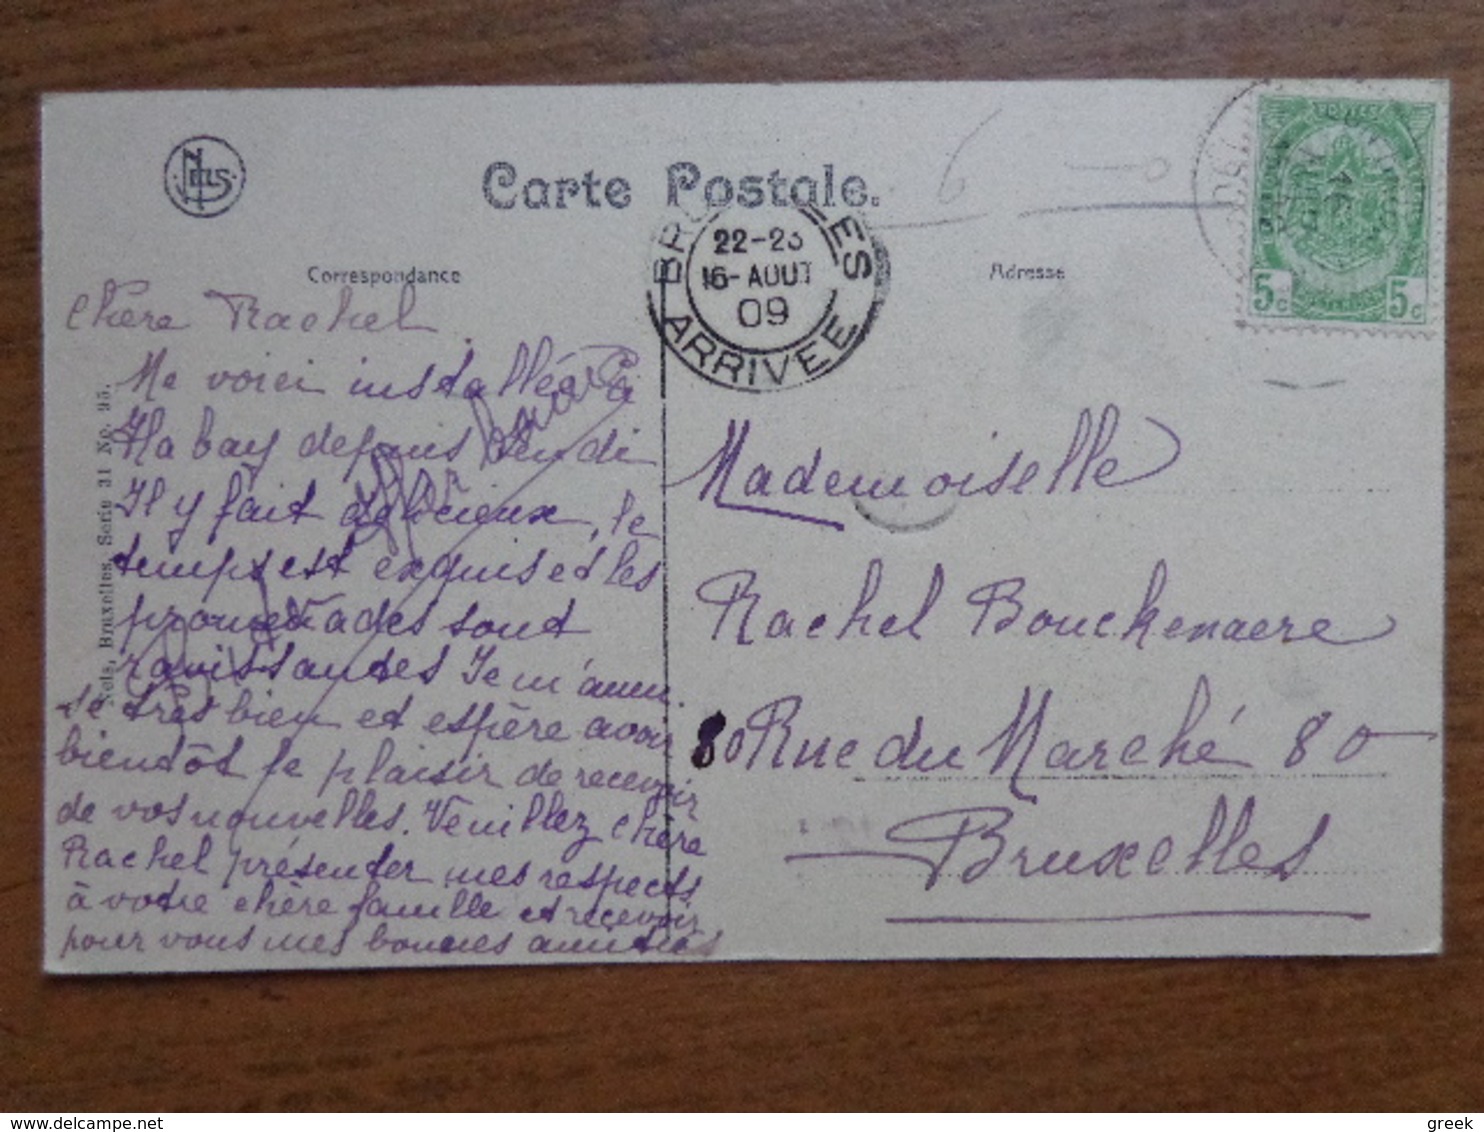 NELS
Carte Postale.
Correspondance
Adresse
6
BRUXELLES
22-23
16-AOUT
09
ARRIVEE
5c 5c
Nels, Bruxelles, Serie 31 No. 95.
Chère Rachel
Me voici installée à
Habay depuis lundi
Il y fait délicieux, le
temps est exquis et les
promenades sont
ravissantes Je m'amu
se très bien et espère avoir
bientôt le plaisir de recevoir
de vos nouvelles. Veuillez chère
Rachel présenter mes respects
à votre chère famille et recevoir
pour vous mes bonnes amitiés
Mademoiselle
Rachel Bouckenaere
80 Rue du Marché 80
Bruxelles
greek
delcampe.net